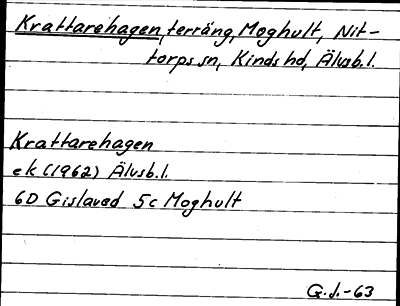 Krattarehagen, terräng, Moghult, Nit-
torps sn, Kinds hd, Älvsb.l.
Krattarehagen
ek (1962) Älvsb.l.
6D Gislaved 5c Moghult
G.J.-63